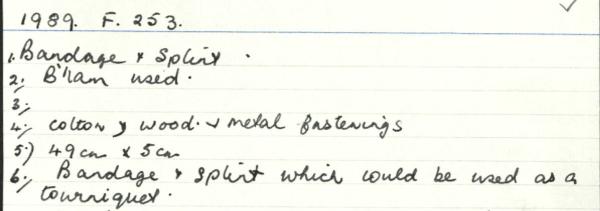 1989. F. 253.
1. Bandage & Splint.
2. B'ham used.
3.
4. cotton, wood & metal fastenings
5.) 49cm x 5cm
6. Bandage & splint which could be used as a
tourniquet.